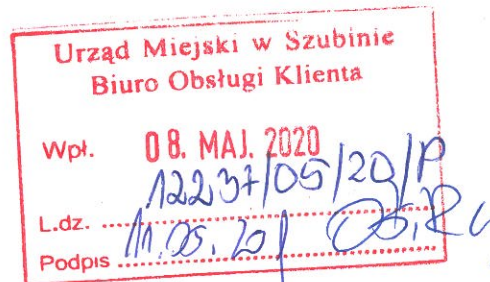 Urząd Miejski w Szubinie
Biuro Obsługi Klienta
Wpł. 08. MAJ. 2020
12237/05/20/P
L.dz.
11.05.20
Podpis